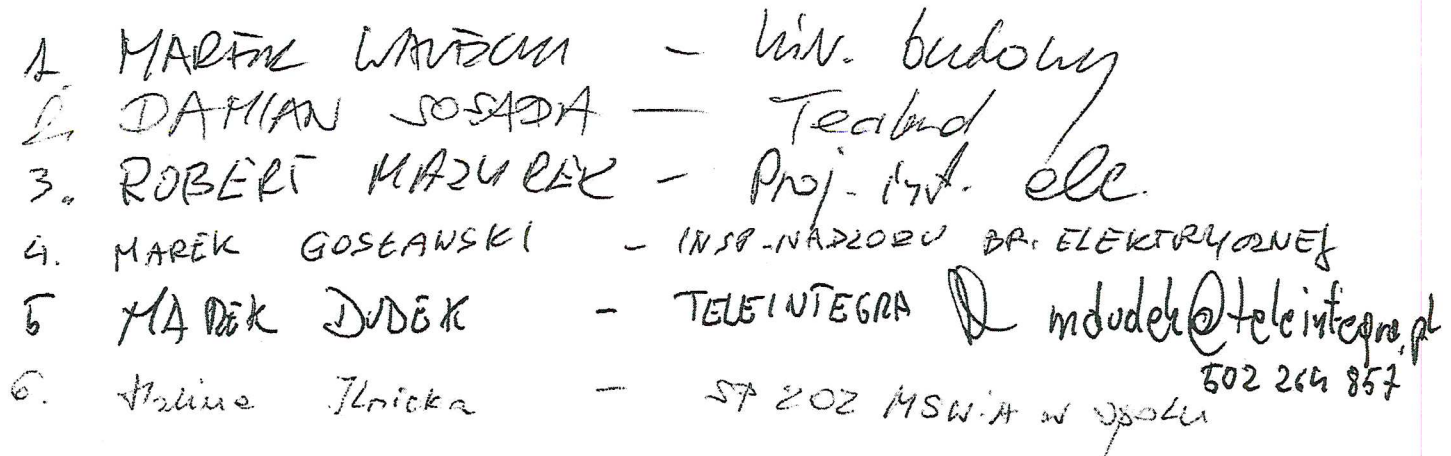 1. MAREK - kier. budowy
2. DAMIAN SOSADA -
3. ROBERT MAZUREK - Proj. inst. ele.
4. MAREK GOSŁAWSKI - INSP. NADZORU BR. ELEKTRYCZNEJ
5 MAREK DUDEK - TELEINTEGRA mdudek@teleintegra.pl
502 264 857
6. Halina Ilnicka - SP ZOZ MSWiA w Opolu